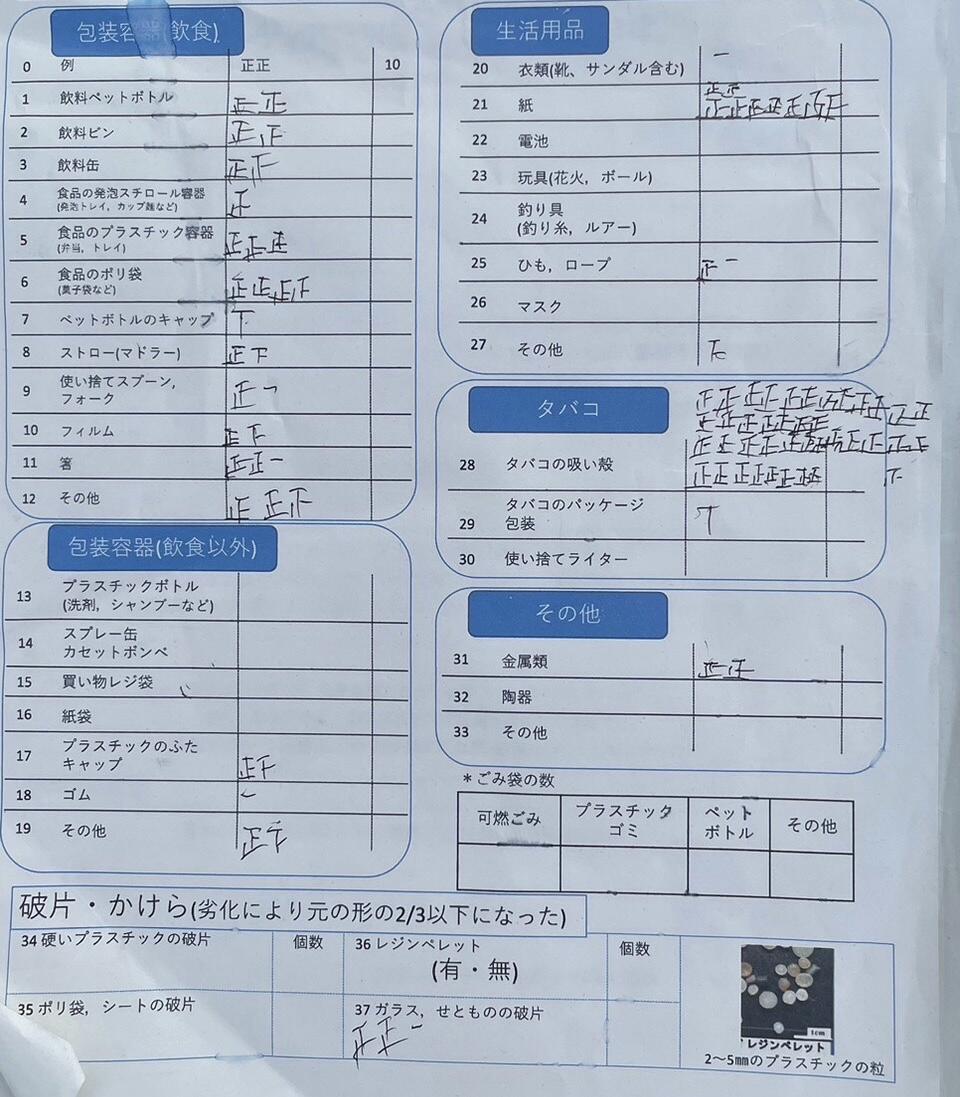 包装容器(飲食)
0 例 正正 10
1 飲料ペットボトル 正正
2 飲料ビン
3 飲料缶
4 食品の発泡スチロール容器
(発泡トレイ，カップ麺など)
5 食品のプラスチック容器 正正正
(弁当，トレイ)
6 食品のポリ袋
(菓子袋など)
7 ペットボトルのキャップ 下
8 ストロー(マドラー) 正下
9 使い捨てスプーン， 正一
フォーク
10 フィルム
11 箸 正正一
12 その他
包装容器(飲食以外)
13 プラスチックボトル
(洗剤，シャンプーなど)
14 スプレー缶
カセットボンベ
15 買い物レジ袋
16 紙袋
17 プラスチックのふた
キャップ
18 ゴム 一
19 その他
生活用品
20 衣類(靴、サンダル含む) 一
21 紙
22 電池
23 玩具(花火，ボール)
24 釣り具
(釣り糸，ルアー)
25 ひも，ロープ 正一
26 マスク
27 その他
タバコ
28 タバコの吸い殻
29 タバコのパッケージ
包装
30 使い捨てライター
その他
31 金属類 正正
32 陶器
33 その他
*ごみ袋の数
可燃ごみ プラスチック
ゴミ ペット
ボトル その他
破片・かけら(劣化により元の形の2/3以下になった)
34 硬いプラスチックの破片 個数
36 レジンペレット 個数
(有・無)
35 ポリ袋，シートの破片
37 ガラス，せとものの破片
正正一
1cm
レジンペレット
2～5㎜のプラスチックの粒